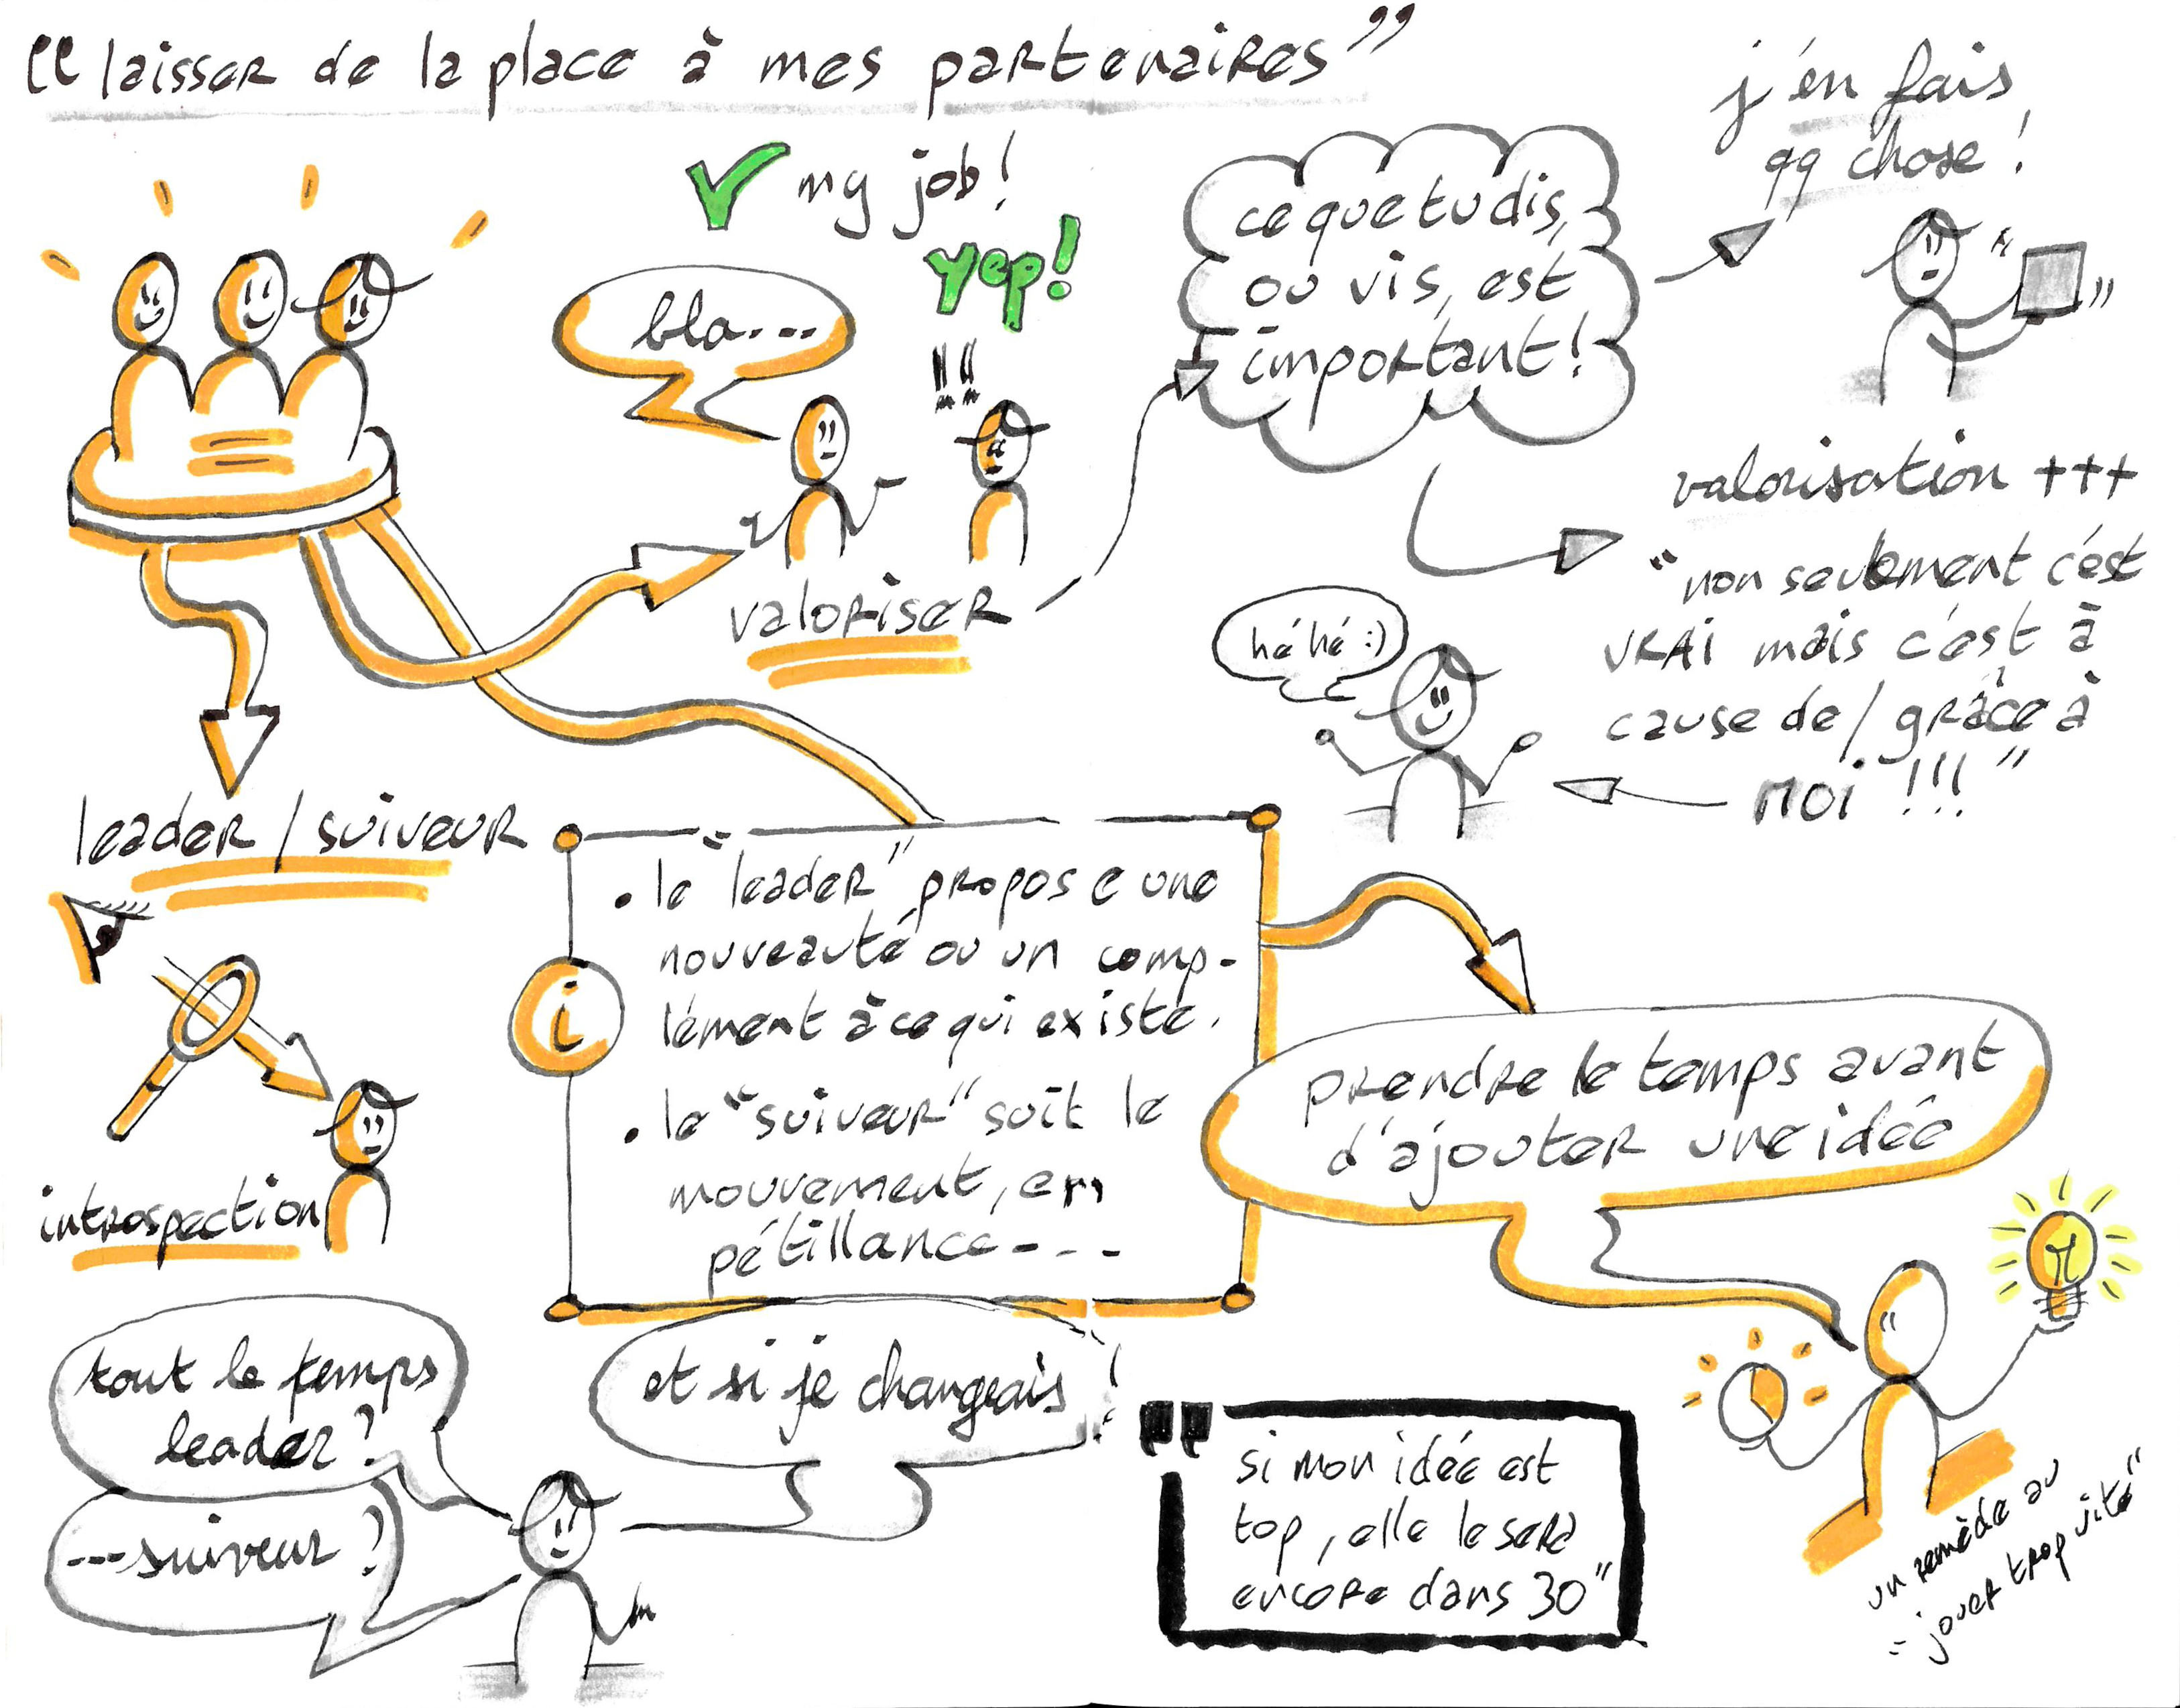 “laisser de la place à mes partenaires”
my job!
yep!
bla...
!!
valoriser
ce que tu dis,
ou vis, est
important!
j'en fais
qq chose!
valorisation +++
"non seulement c'est
VRAI mais c'est à
cause de/grâce à
MOI !!!"
hé hé :)
leader/suiveur
introspection
i
• le "leader" propose une
nouveauté ou un comp-
lément à ce qui existe.
• le "suiveur" suit le
mouvement, en
pétillance---
prendre le temps avant
d'ajouter une idée
tout le temps
leader?
---suiveur?
et si je changeais!
"
si mon idée est
top, elle le sera
encore dans 30"
un remède au
"jouer trop vite"